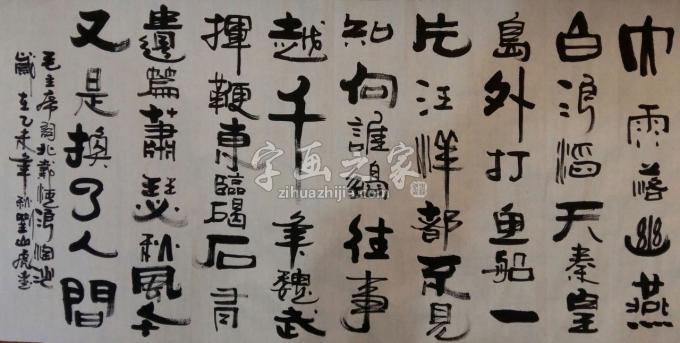 大雨落幽燕
白浪滔天秦皇
島外打魚船一
片汪洋都不見
知向誰邊往事
越千年魏武
揮鞭東臨碣石有
遺篇蕭瑟秋風今
又是換了人間
毛主席詞北戴河浪淘沙
歲在乙未年秋
字画之家
zihuazhijia.com